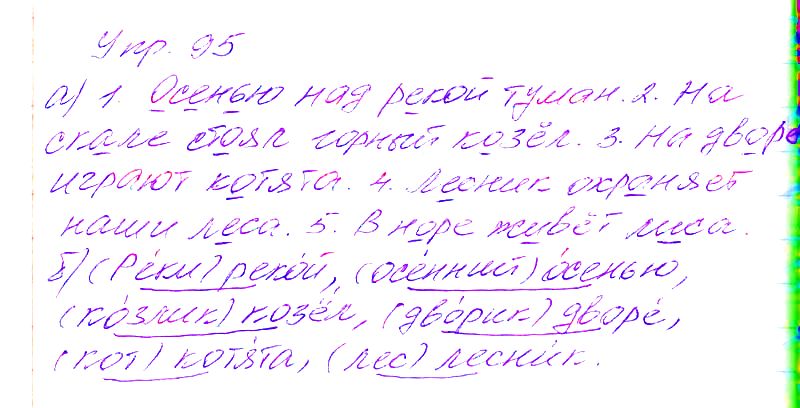 Упр. 95
а) 1. Осенью над рекой туман. 2. На
скале стоял горный козёл. 3. На дворе
играют котята. 4. Лесник охраняет
наши леса. 5. В норе живёт лиса.
б) (Ре́ки) реко́й, (осе́нний) о́сенью,
(ко́злик) козёл, (дво́рик) дворе́,
(кот) котя́та, (лес) лесни́к.